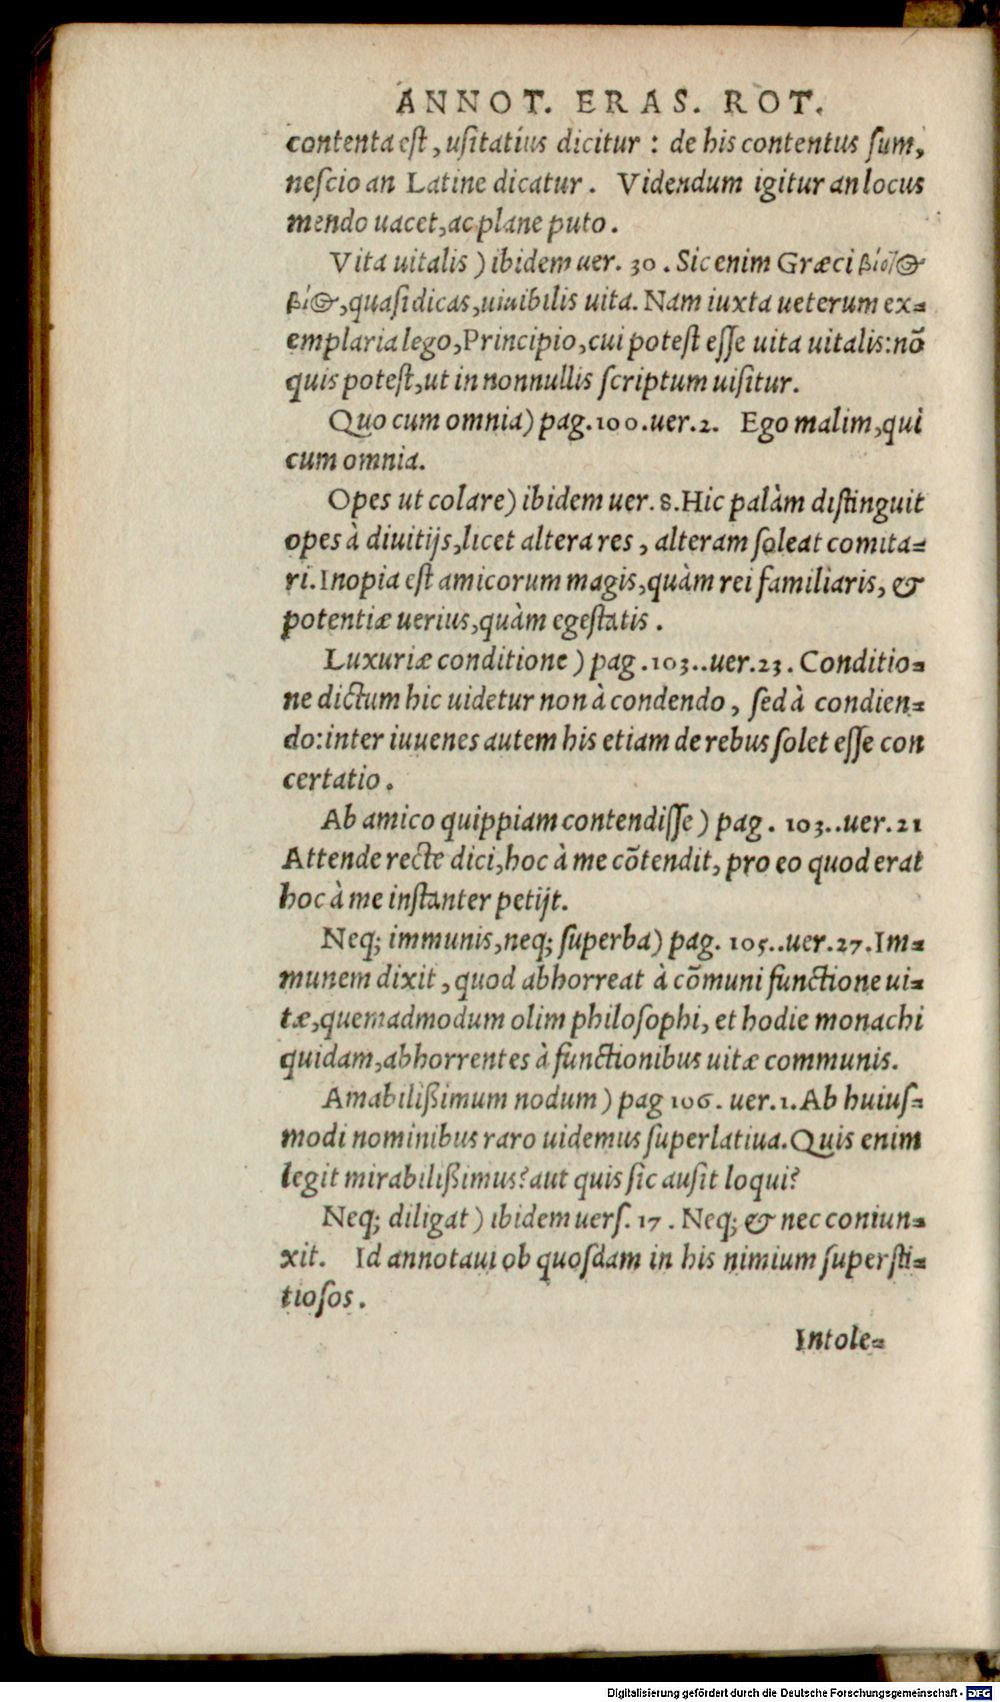 ANNOT. ERAS. ROT.
contenta est, usitatius dicitur : de his contentus sum,
nescio an Latine dicatur. Videndum igitur an locus
mendo uacet, ac plane puto.
Vita uitalis ) ibidem uer. 30. Sic enim Græci
quasi dicas, uiuibilis uita. Nam iuxta ueterum ex=
emplaria lego, Principio, cui potest esse uita uitalis: nõ
quis potest, ut in nonnullis scriptum uisitur.
Quo cum omnia) pag. 100. uer. 2. Ego malim, qui
cum omnia.
Opes ut colare) ibidem uer. 8. Hic palàm distinguit
opes à diuitijs, licet altera res, alteram soleat comita=
ri. Inopia est amicorum magis, quàm rei familiaris, &
potentiæ uerius, quàm egestatis.
Luxuriæ conditione ) pag. 103.. uer. 23. Conditio=
ne dictum hic uidetur non à condendo, sed à condien=
do: inter iuuenes autem his etiam de rebus solet esse con
certatio.
Ab amico quippiam contendisse ) pag. 103.. uer. 21
Attende recte dici, hoc à me cõtendit, pro eo quod erat
hoc à me instanter petijt.
Neq; immunis, neq; superba) pag. 105.. uer. 27. Im=
munem dixit, quod abhorreat à cõmuni functione ui=
tæ, quemadmodum olim philosophi, et hodie monachi
quidam, abhorrentes à functionibus uitæ communis.
Amabilißimum nodum ) pag 106. uer. 1. Ab huius=
modi nominibus raro uidemus superlatiua. Quis enim
legit mirabilißimus? aut quis sic ausit loqui?
Neq; diligat ) ibidem uers. 17. Neq; & nec coniun=
xit. Id annotaui ob quosdam in his nimium supersti=
tiosos.
Intole=
Digitalisierung gefördert durch die Deutsche Forschungsgemeinschaft - DFG